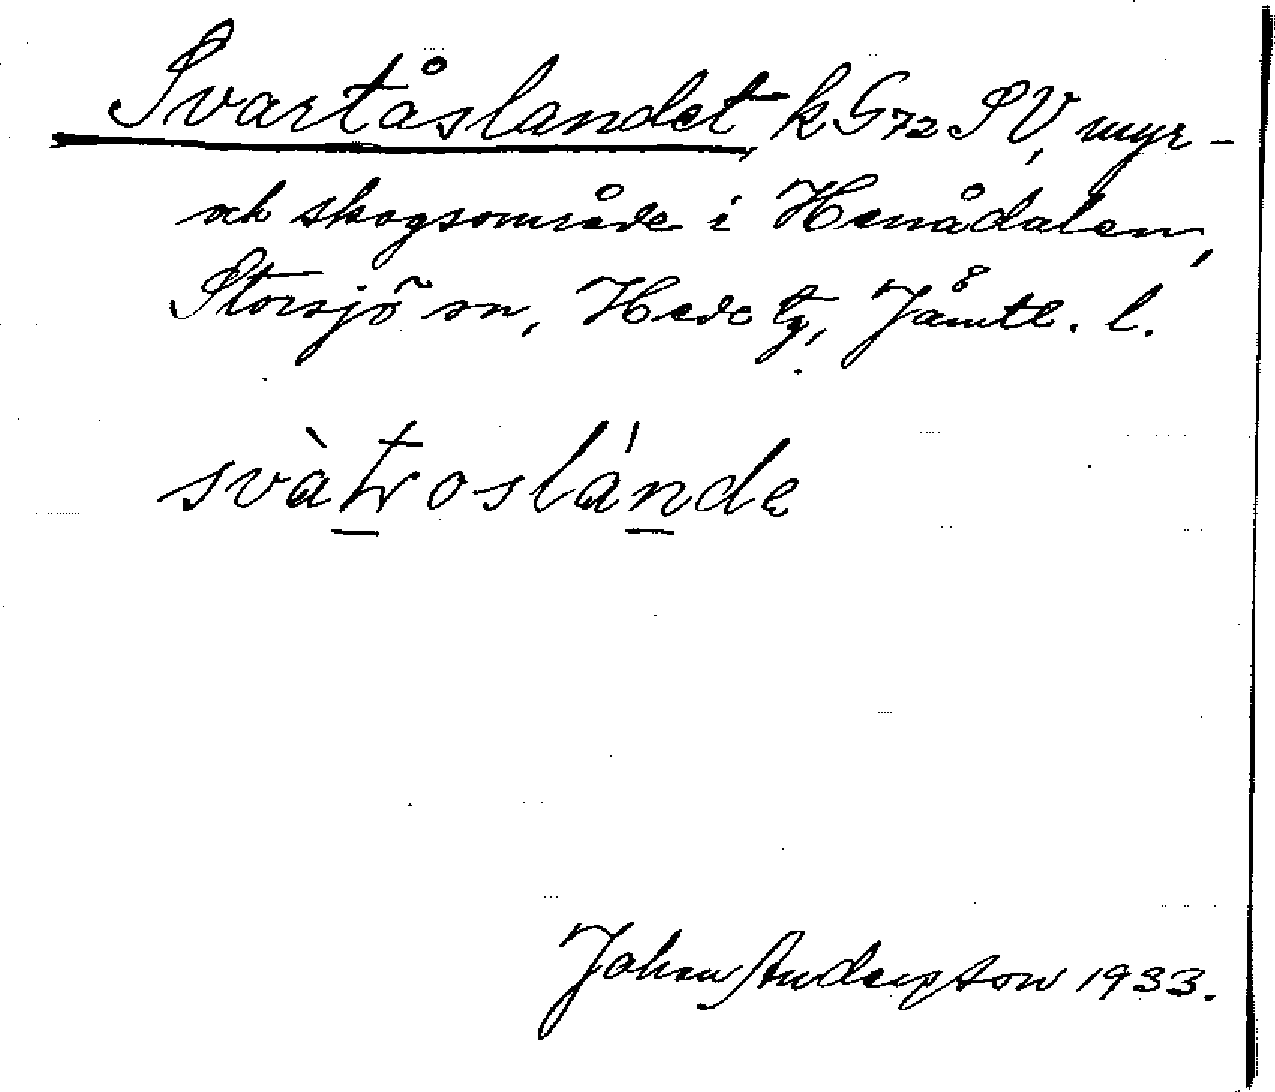 Svartåslandet, k G72 SV, myr-
och skogsområde i Henådalen,
Storsjö sn, Hede tg, Jämtl. l.
svàtroslánde
Johan Andersson 1933.